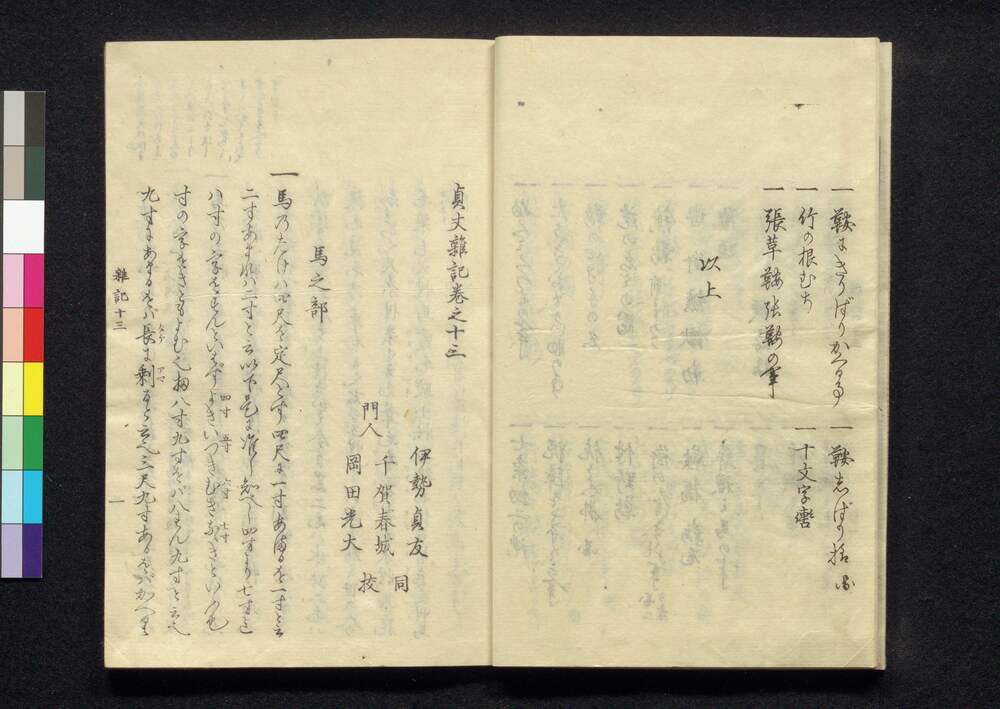 一 鞍にきりばりかくる事 一 鞍しぼり括 図
一 竹の根むち 一 十文字轡
一 張草鞍張鞍の事
以上
貞丈雑記巻之十三
伊勢貞友
門人 千賀春城 同
岡田光大 校
馬之部
一 馬のたけハ四尺を定尺とす四尺に一寸あまるを一寸と云
二寸あまれハ二寸と云以下是に准し知へし四寸より七寸迄
ハ寸の字をすんといはすよきいつきむきなゝきといふ也
四寸 五寸 六寸 七寸
寸の字をきともよむ也扨八寸九寸をハ八すん九寸と云也
九寸にあまるをバ長に剰ると云也三尺九寸あるをバかへり
タケ アマ
雑記十三
一